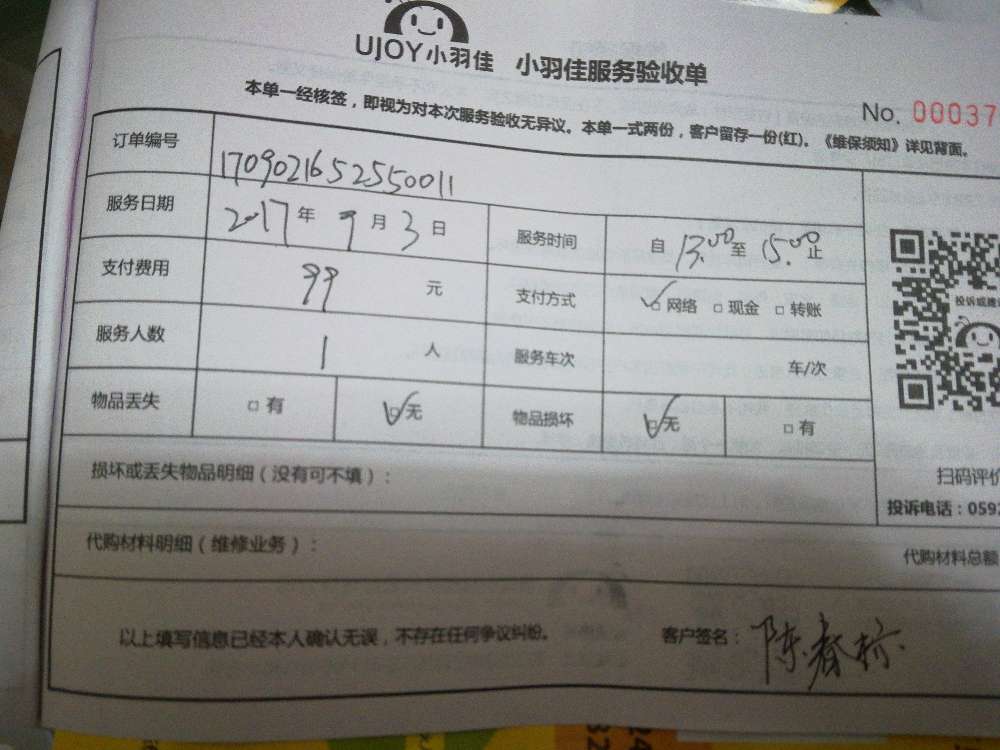 UJOY小羽佳 小羽佳服务验收单
本单一经核签，即视为对本次服务验收无异议。本单一式两份，客户留存一份(红)。《维保须知》详见背面。
No. 00037
订单编号 1709021652550011
服务日期 2017年9月3日 服务时间 自13:00至15:00止
支付费用 99元 支付方式 网络 现金 转账
服务人数 1人 服务车次 车/次
物品丢失 有 无 物品损坏 无 有
投诉或建
扫码评价
投诉电话：0592
损坏或丢失物品明细（没有可不填）：
代购材料明细（维修业务）： 代购材料总额
以上填写信息已经本人确认无误，不存在任何争议纠纷。 客户签名：陈春